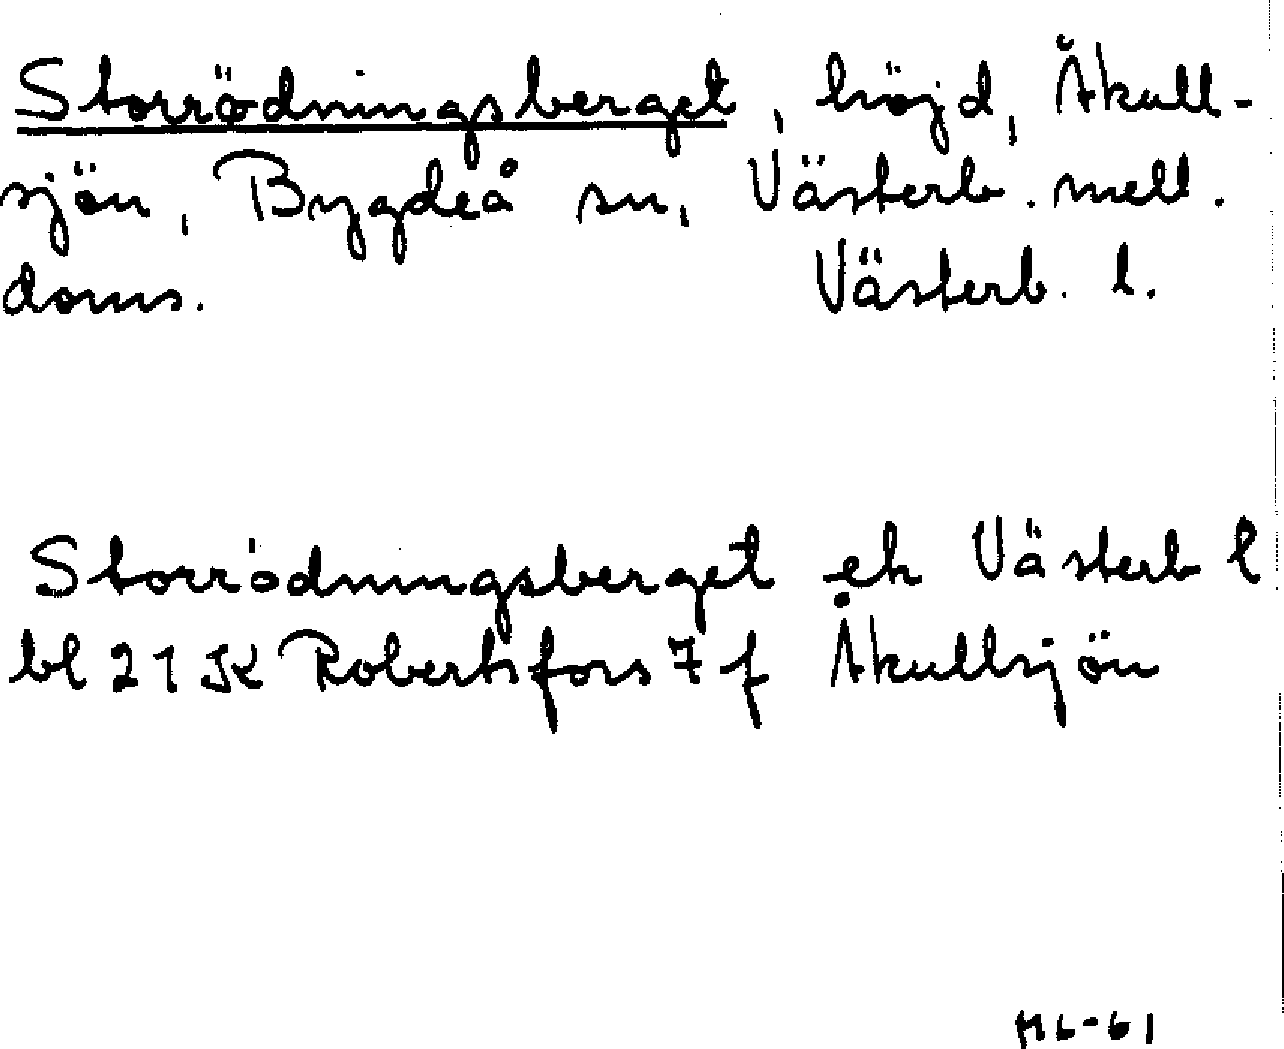 Storrödningsberget, höjd, Åkull-
sjön, Bygdeå sn, Västerb. mell.
doms. Västerb. l.
Storrödningsberget ek Västerb l
bl 21 JK Robertsfors 7 f Åkullsjön